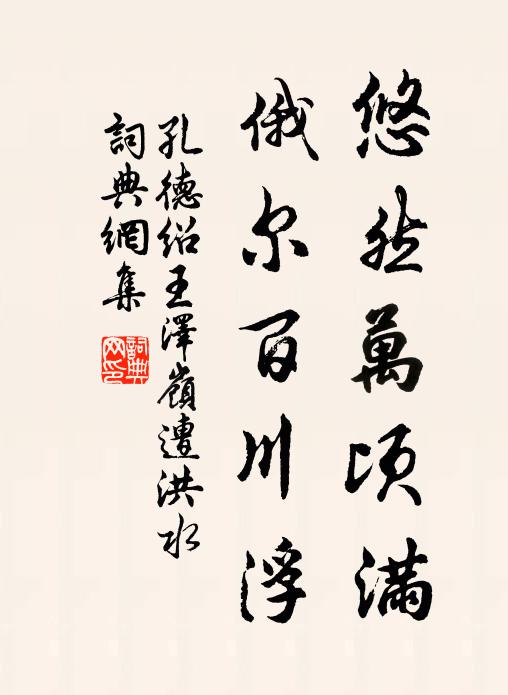 悠然萬頃滿
俄尔百川浮
孔德绍王澤嶺遭洪水
詞典網集
詞典网印